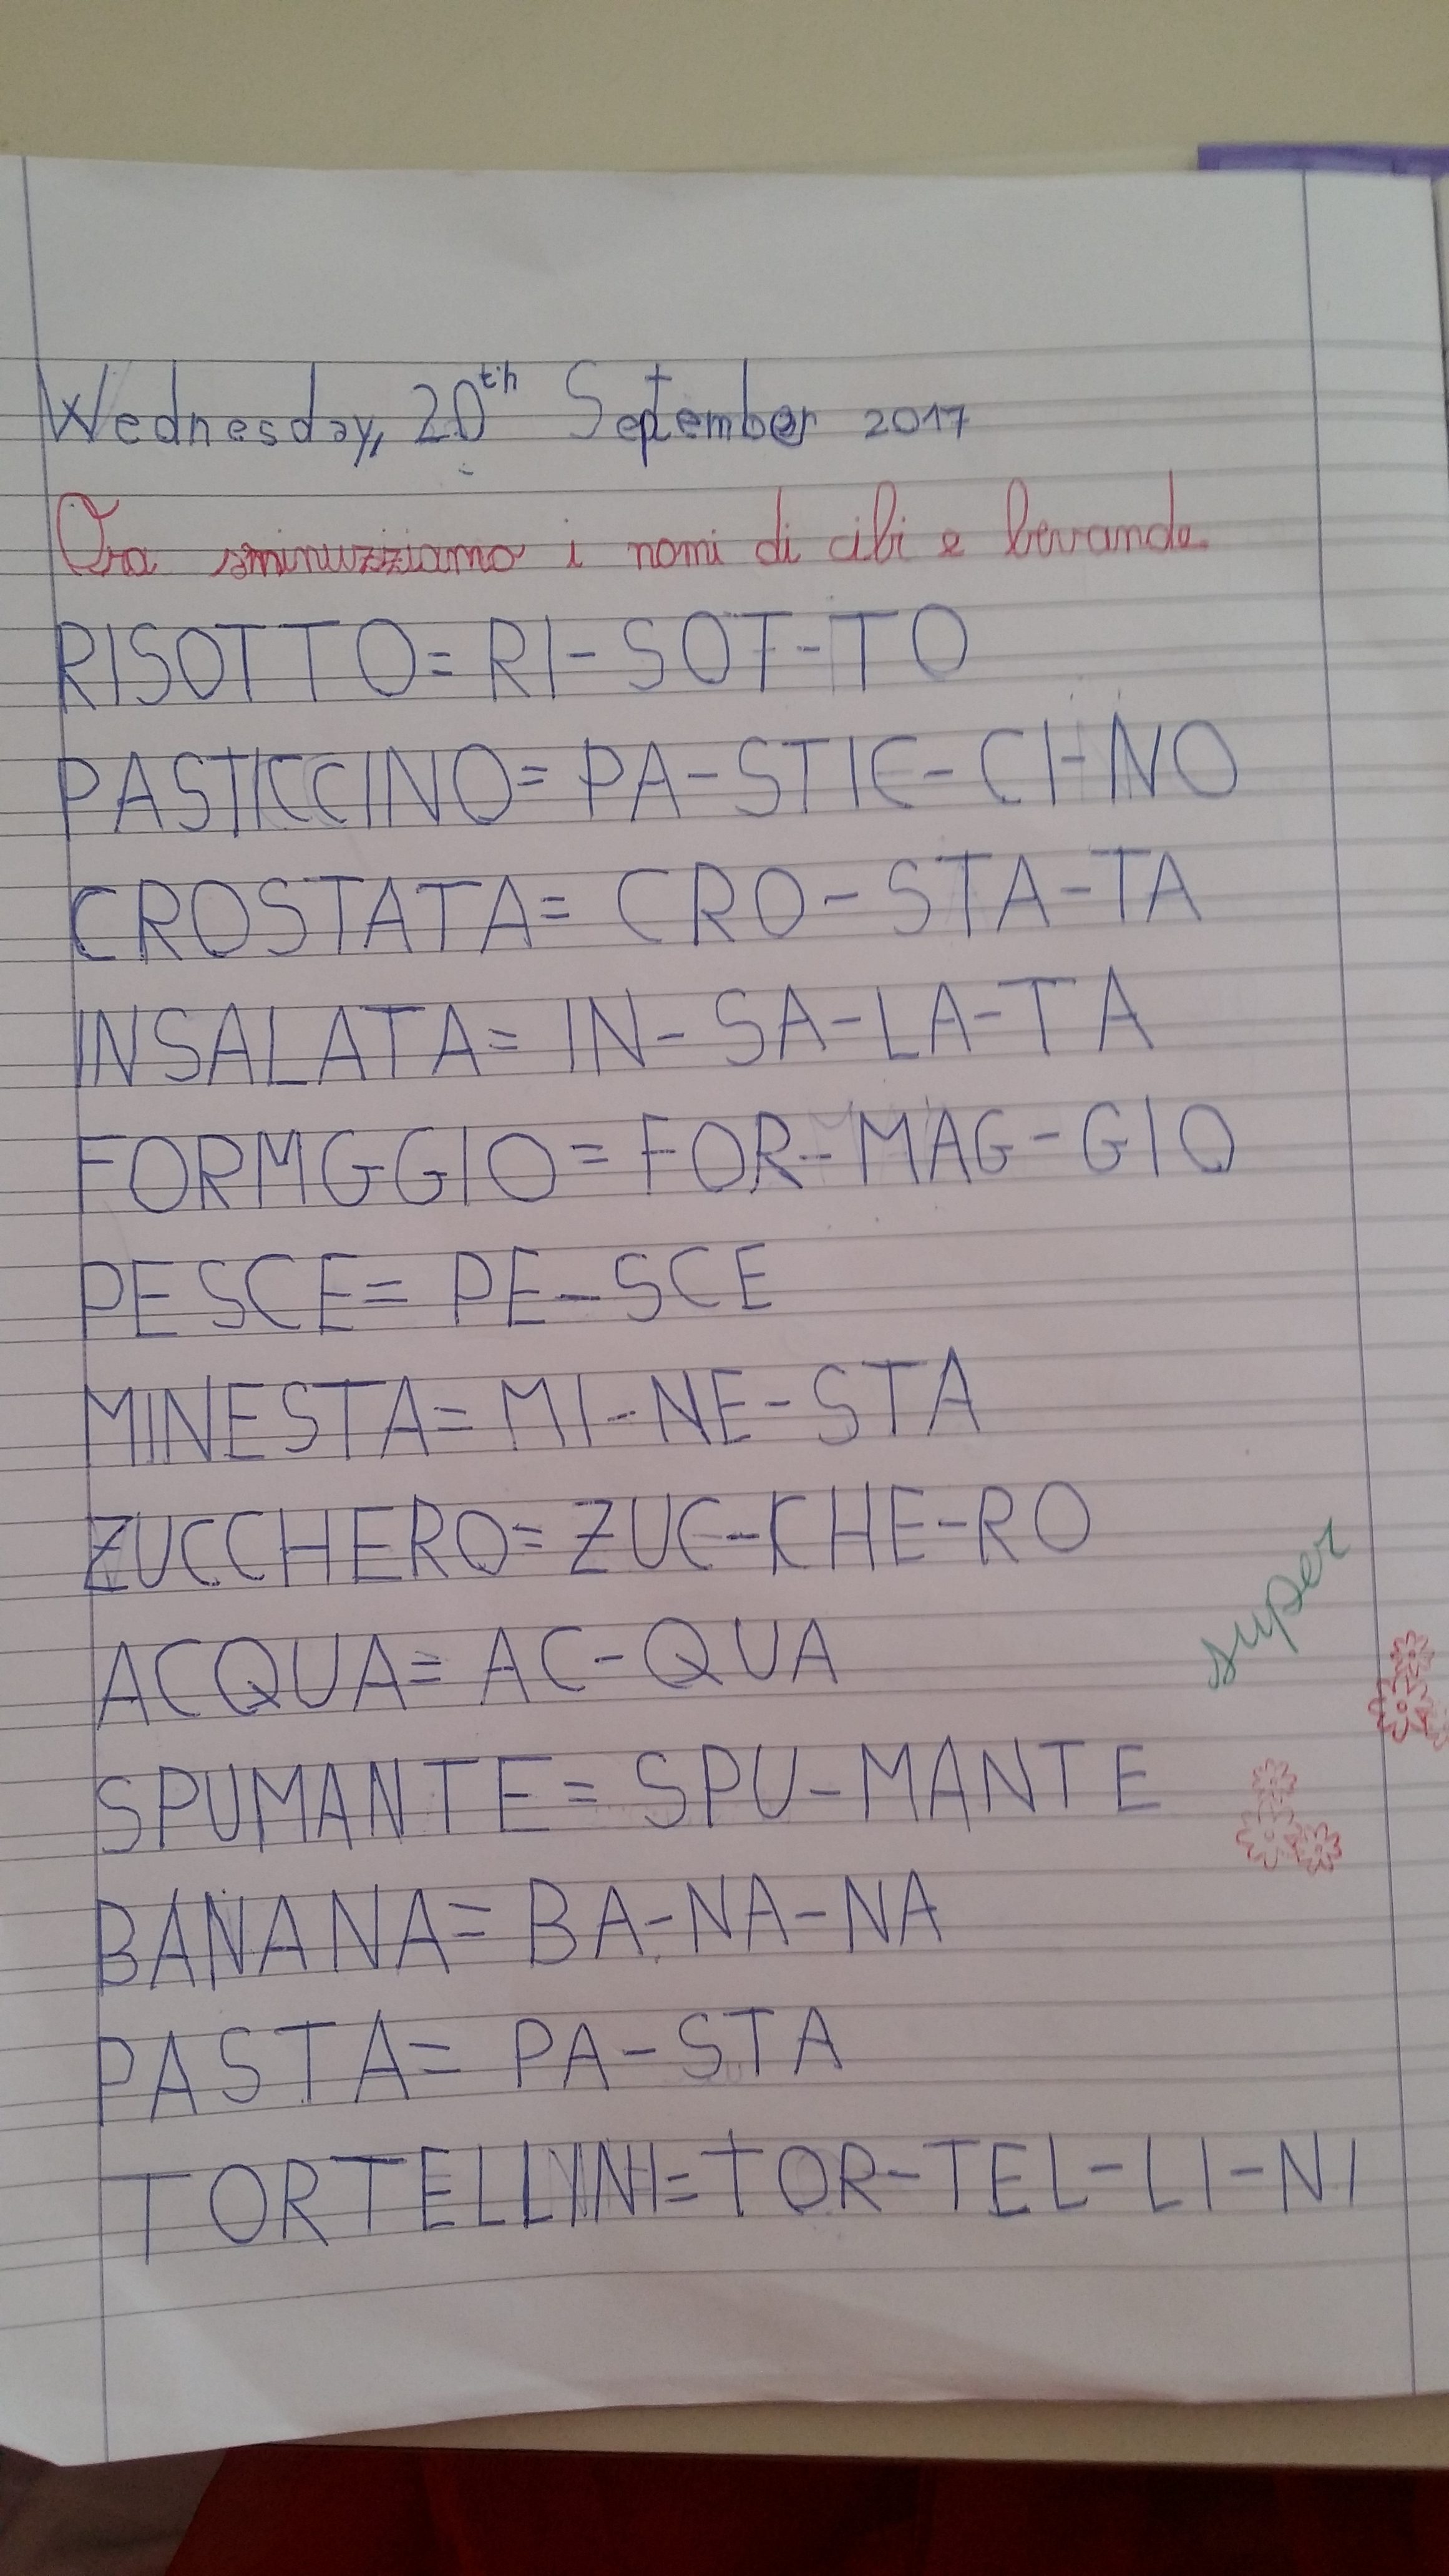 Wednesday, 20th September 2017
Ora sminuzziamo i nomi di cibi e bevande.
RISOTTO= RI-SOT-TO
PASTICCINO= PA-STIC-CI-NO
CROSTATA= CRO-STA-TA
INSALATA= IN-SA-LA-TA
FORMGGIO= FOR-MAG-GIO
PESCE= PE-SCE
MINESTA= MI-NE-STA
ZUCCHERO= ZUC-CHE-RO
super
ACQUA= AC-QUA
SPUMANTE= SPU-MANTE
BANANA= BA-NA-NA
PASTA= PA-STA
TORTELLINI= TOR-TEL-LI-NI